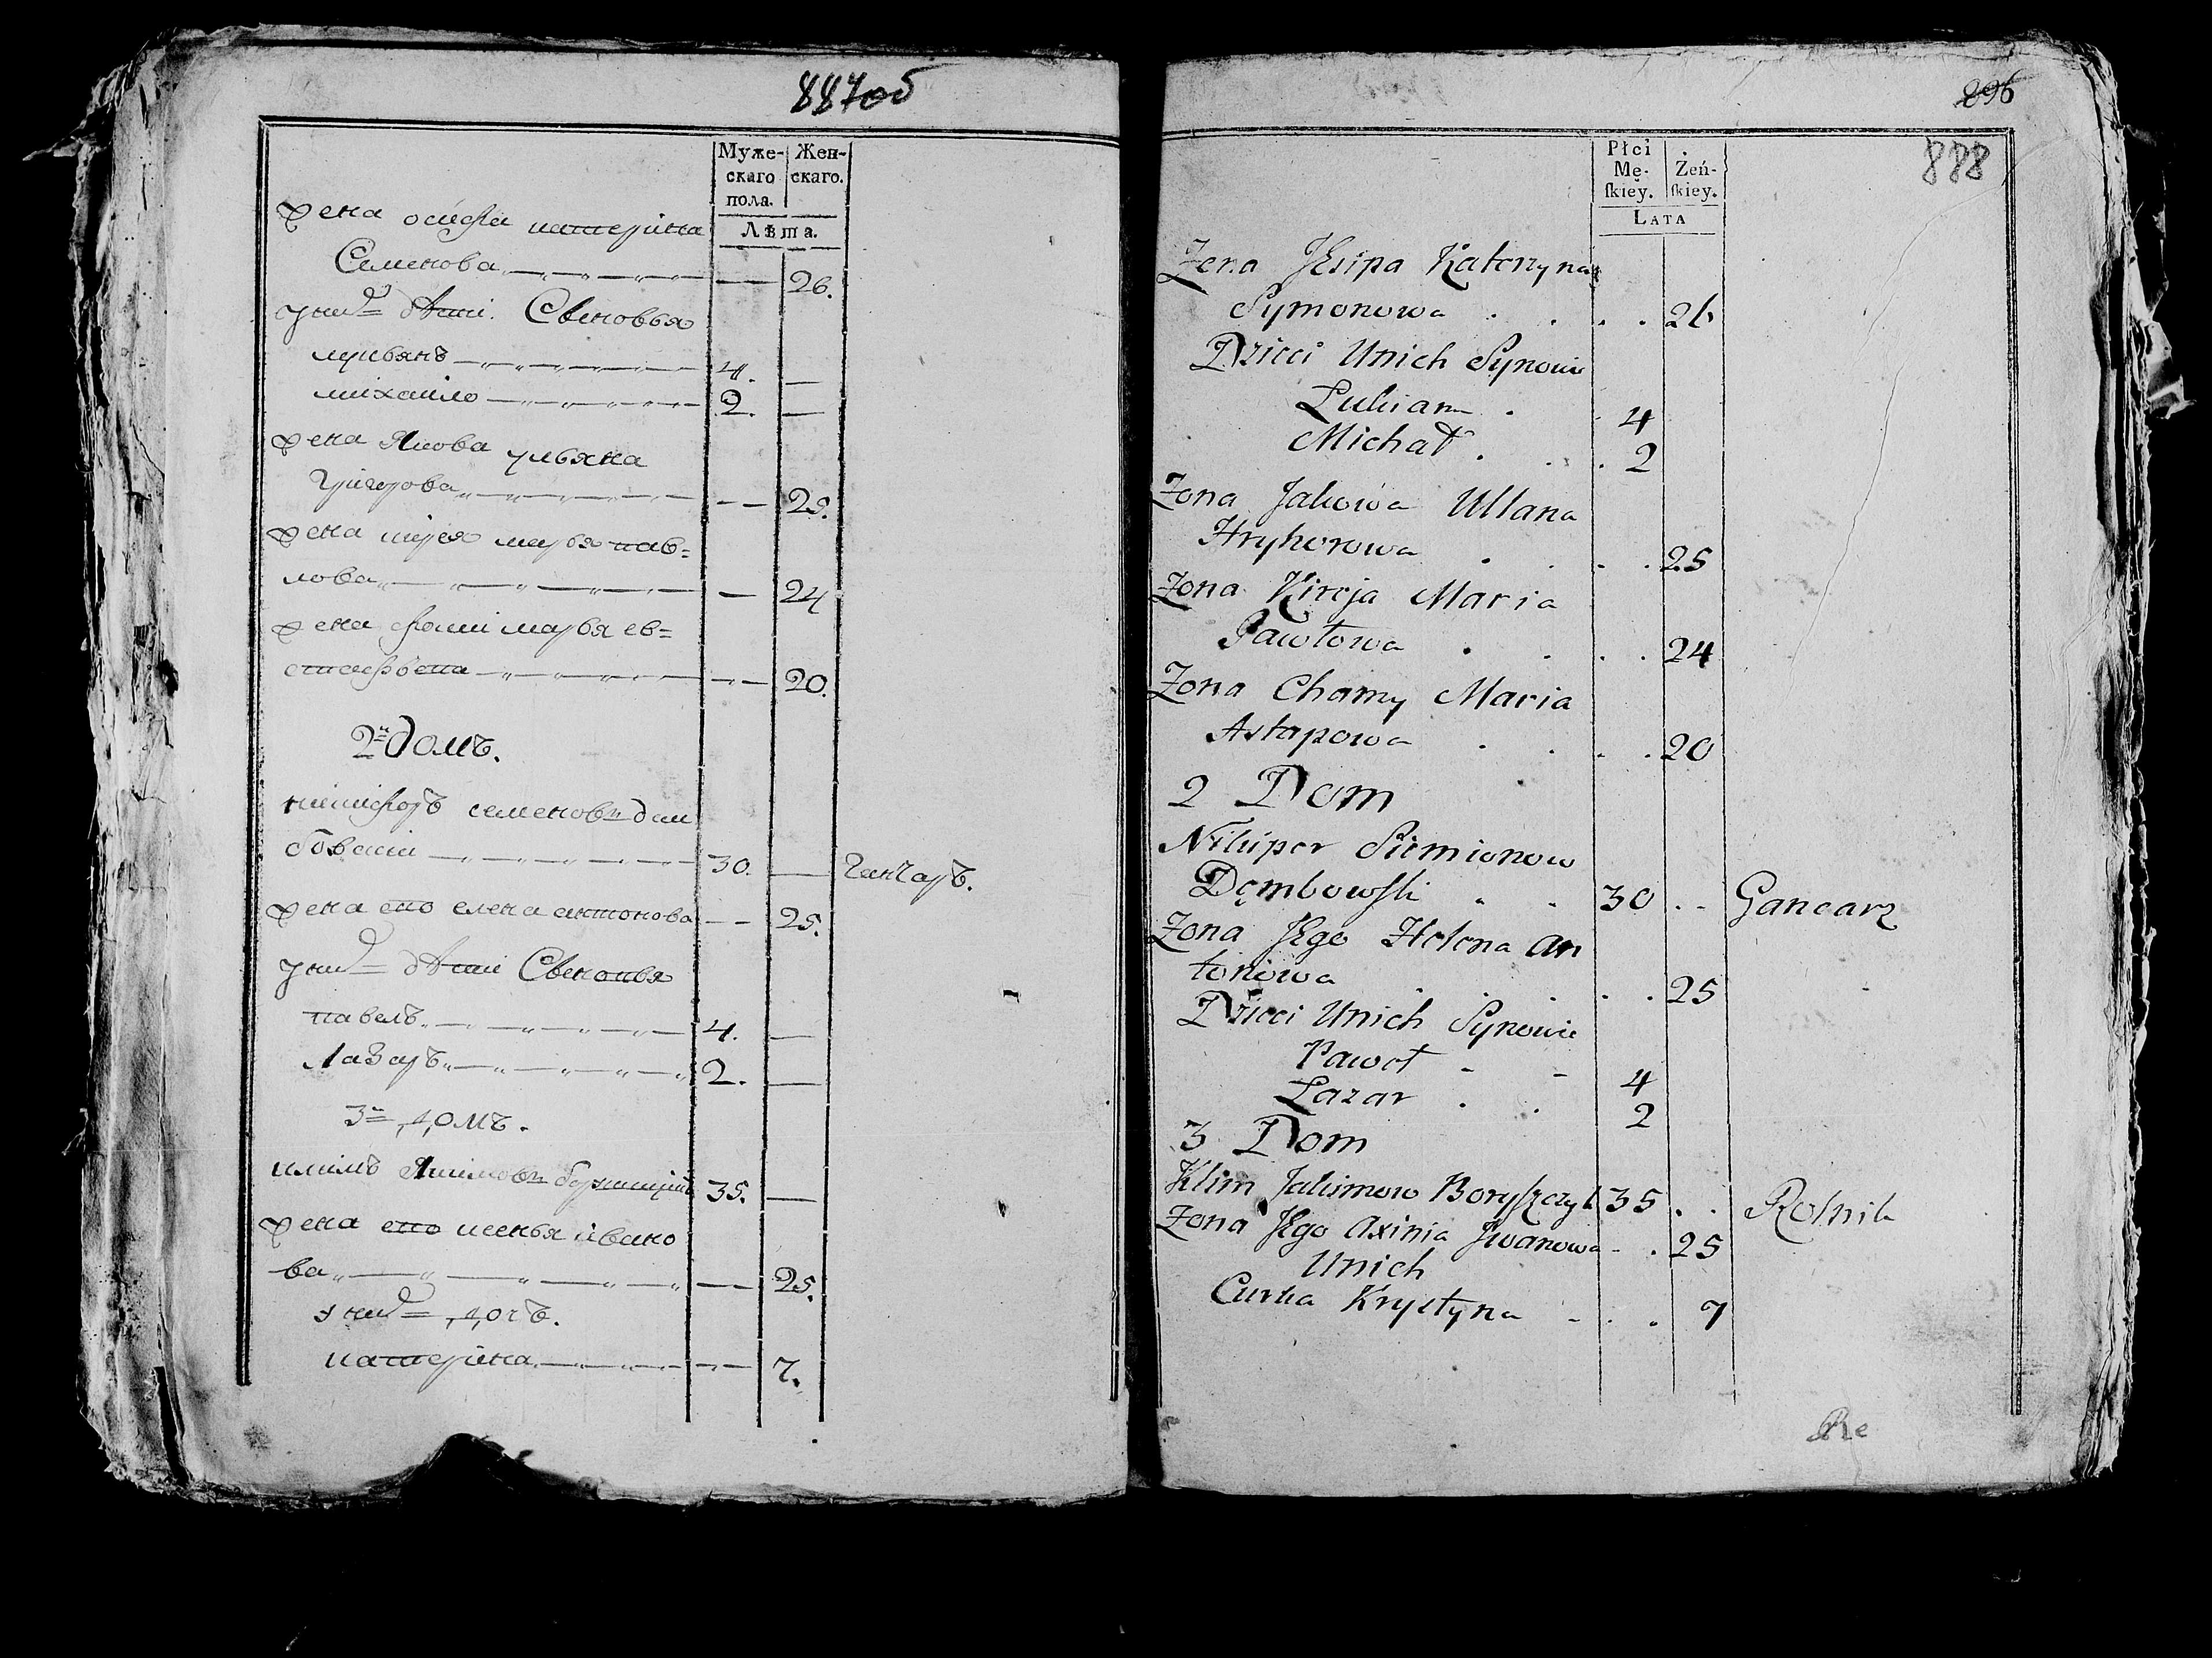 887об
Муже- Жен-
скаго скаго.
пола.
Лѣта.
жена осифа катеріна
Семенова 26.
у них дѣти. Сыновья
лукьянъ 4. —
міхаило 2. —
жена Якова ульяна
григорова 25.
жена кірея марья пав=
лова 24
жена фомы марья ев=
стафьева 20.
2й домъ.
никифоръ семеновъ дом
бовскій 30. — ганчаръ.
жена его елена антонова 25.
у них дѣти Сыновья
павелъ 4. —
Лазарь 2. —
3й домъ.
климъ Якимовъ 35. —
жена его ксенья івано
ва 25.
у них дочь.
катеріна 7.
896
888
Płci
Mę- Żeń-
ſkiey. ſkiey.
LATA
Żona Jesipa Katerzyna
Symonowa . . . . 26
Dzieci Unich Synowie
Lukian . . 4
Michał . . . 2
Żona Jakowa Ullana
Hryhorowa . . . . 25
Żona Kireja Maria
Pawłowa . . . . 24
Żona Chomy Maria
Astapowa . . . . 20
2 Dom
Nikiper Siemionow
Dęmbowſki . . 30 . . Gancarz
Żona Jego Helena An
toniowa . . . . . 25
Dzieci Unich Synowie
Paweł - - 4
Lazar . . 2
3 Dom
Klim Jakimow Boryſzczyk 35 . . Rolnik
Żona Jego Axinia Jwanowa - . 25
Unich
Curka Krystyna - . . 7
Re